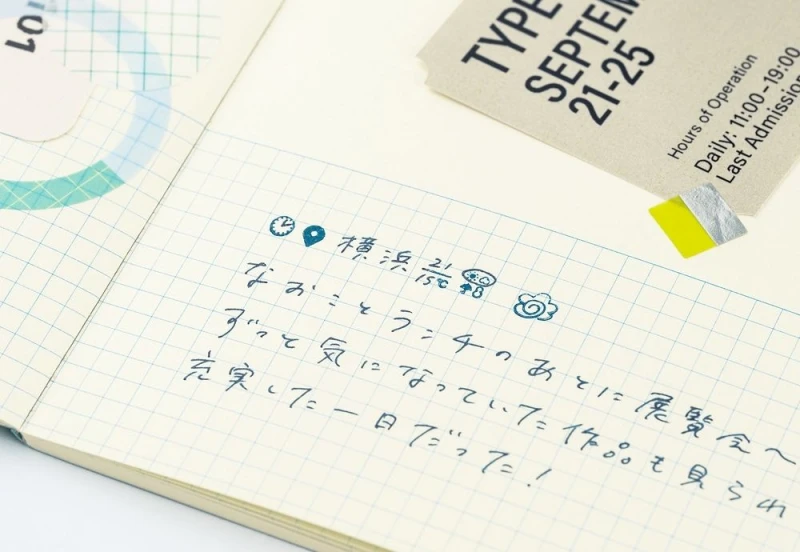 101
TYPE
SEPTEM
21-25
Hours of Operation
Daily: 11:00–19:00
Last Admission
横浜 21/15℃
なおことランチのあとに展覧会へ
ずっと気になっていた作品も見られ
充実した一日だった!